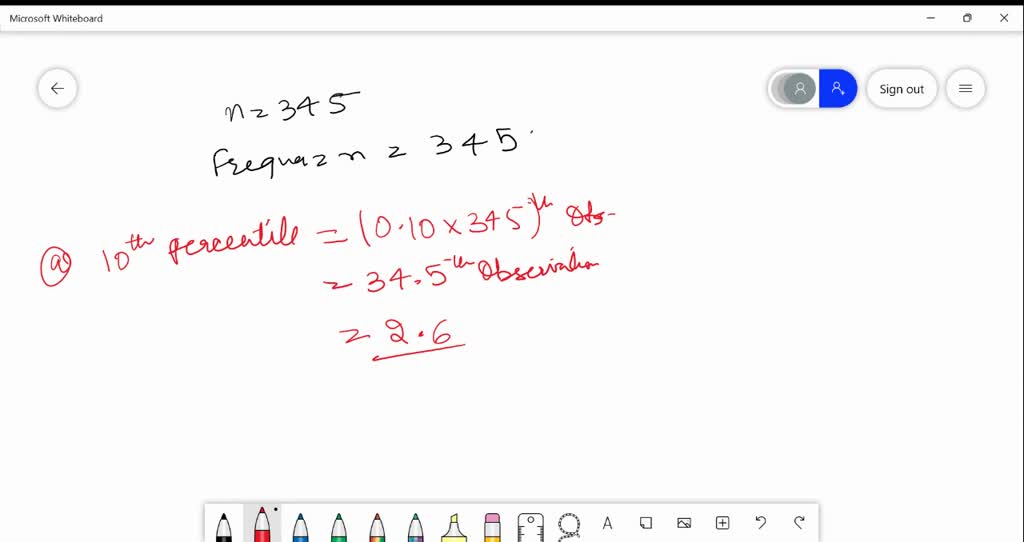 Microsoft Whiteboard
Sign out
n = 345
Frequa = n = 345
(a) 10th percentile = (0.10 × 345)th Obs-
= 34.5th Observation
= 2.6
A